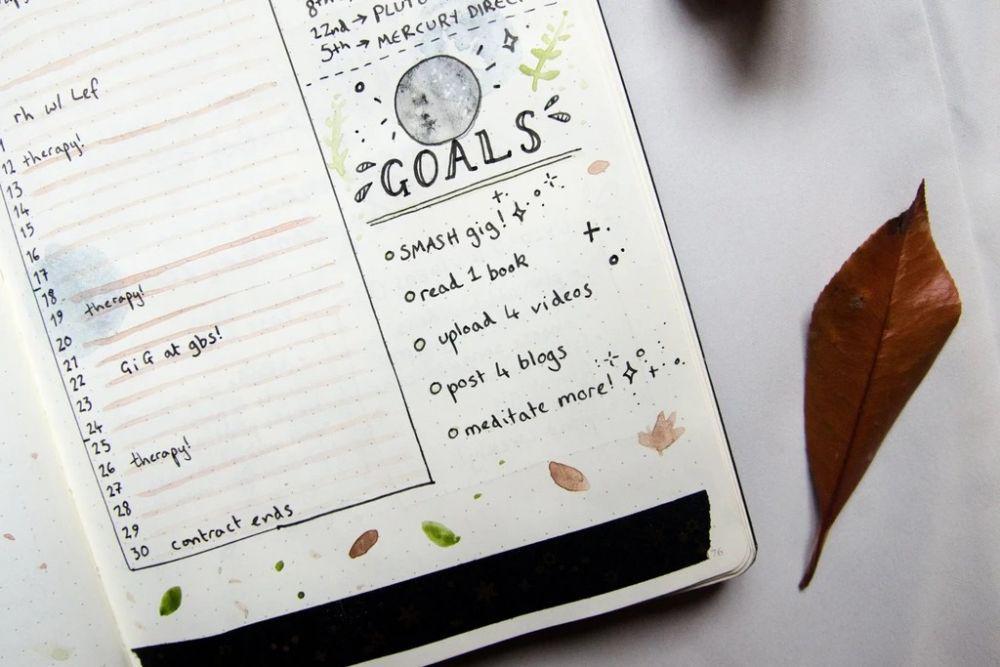 8th
22nd → PLUTO
5th → MERCURY DIRECT
rh w/ Lef
12 therapy!
13
14
15
16
17
18
19 therapy!
20
21
22 GiG at gbs!
23
24
25
26 therapy!
27
28
29
30 contract ends
GOALS
SMASH gig!
read 1 book
upload 4 videos
post 4 blogs
meditate more!
76